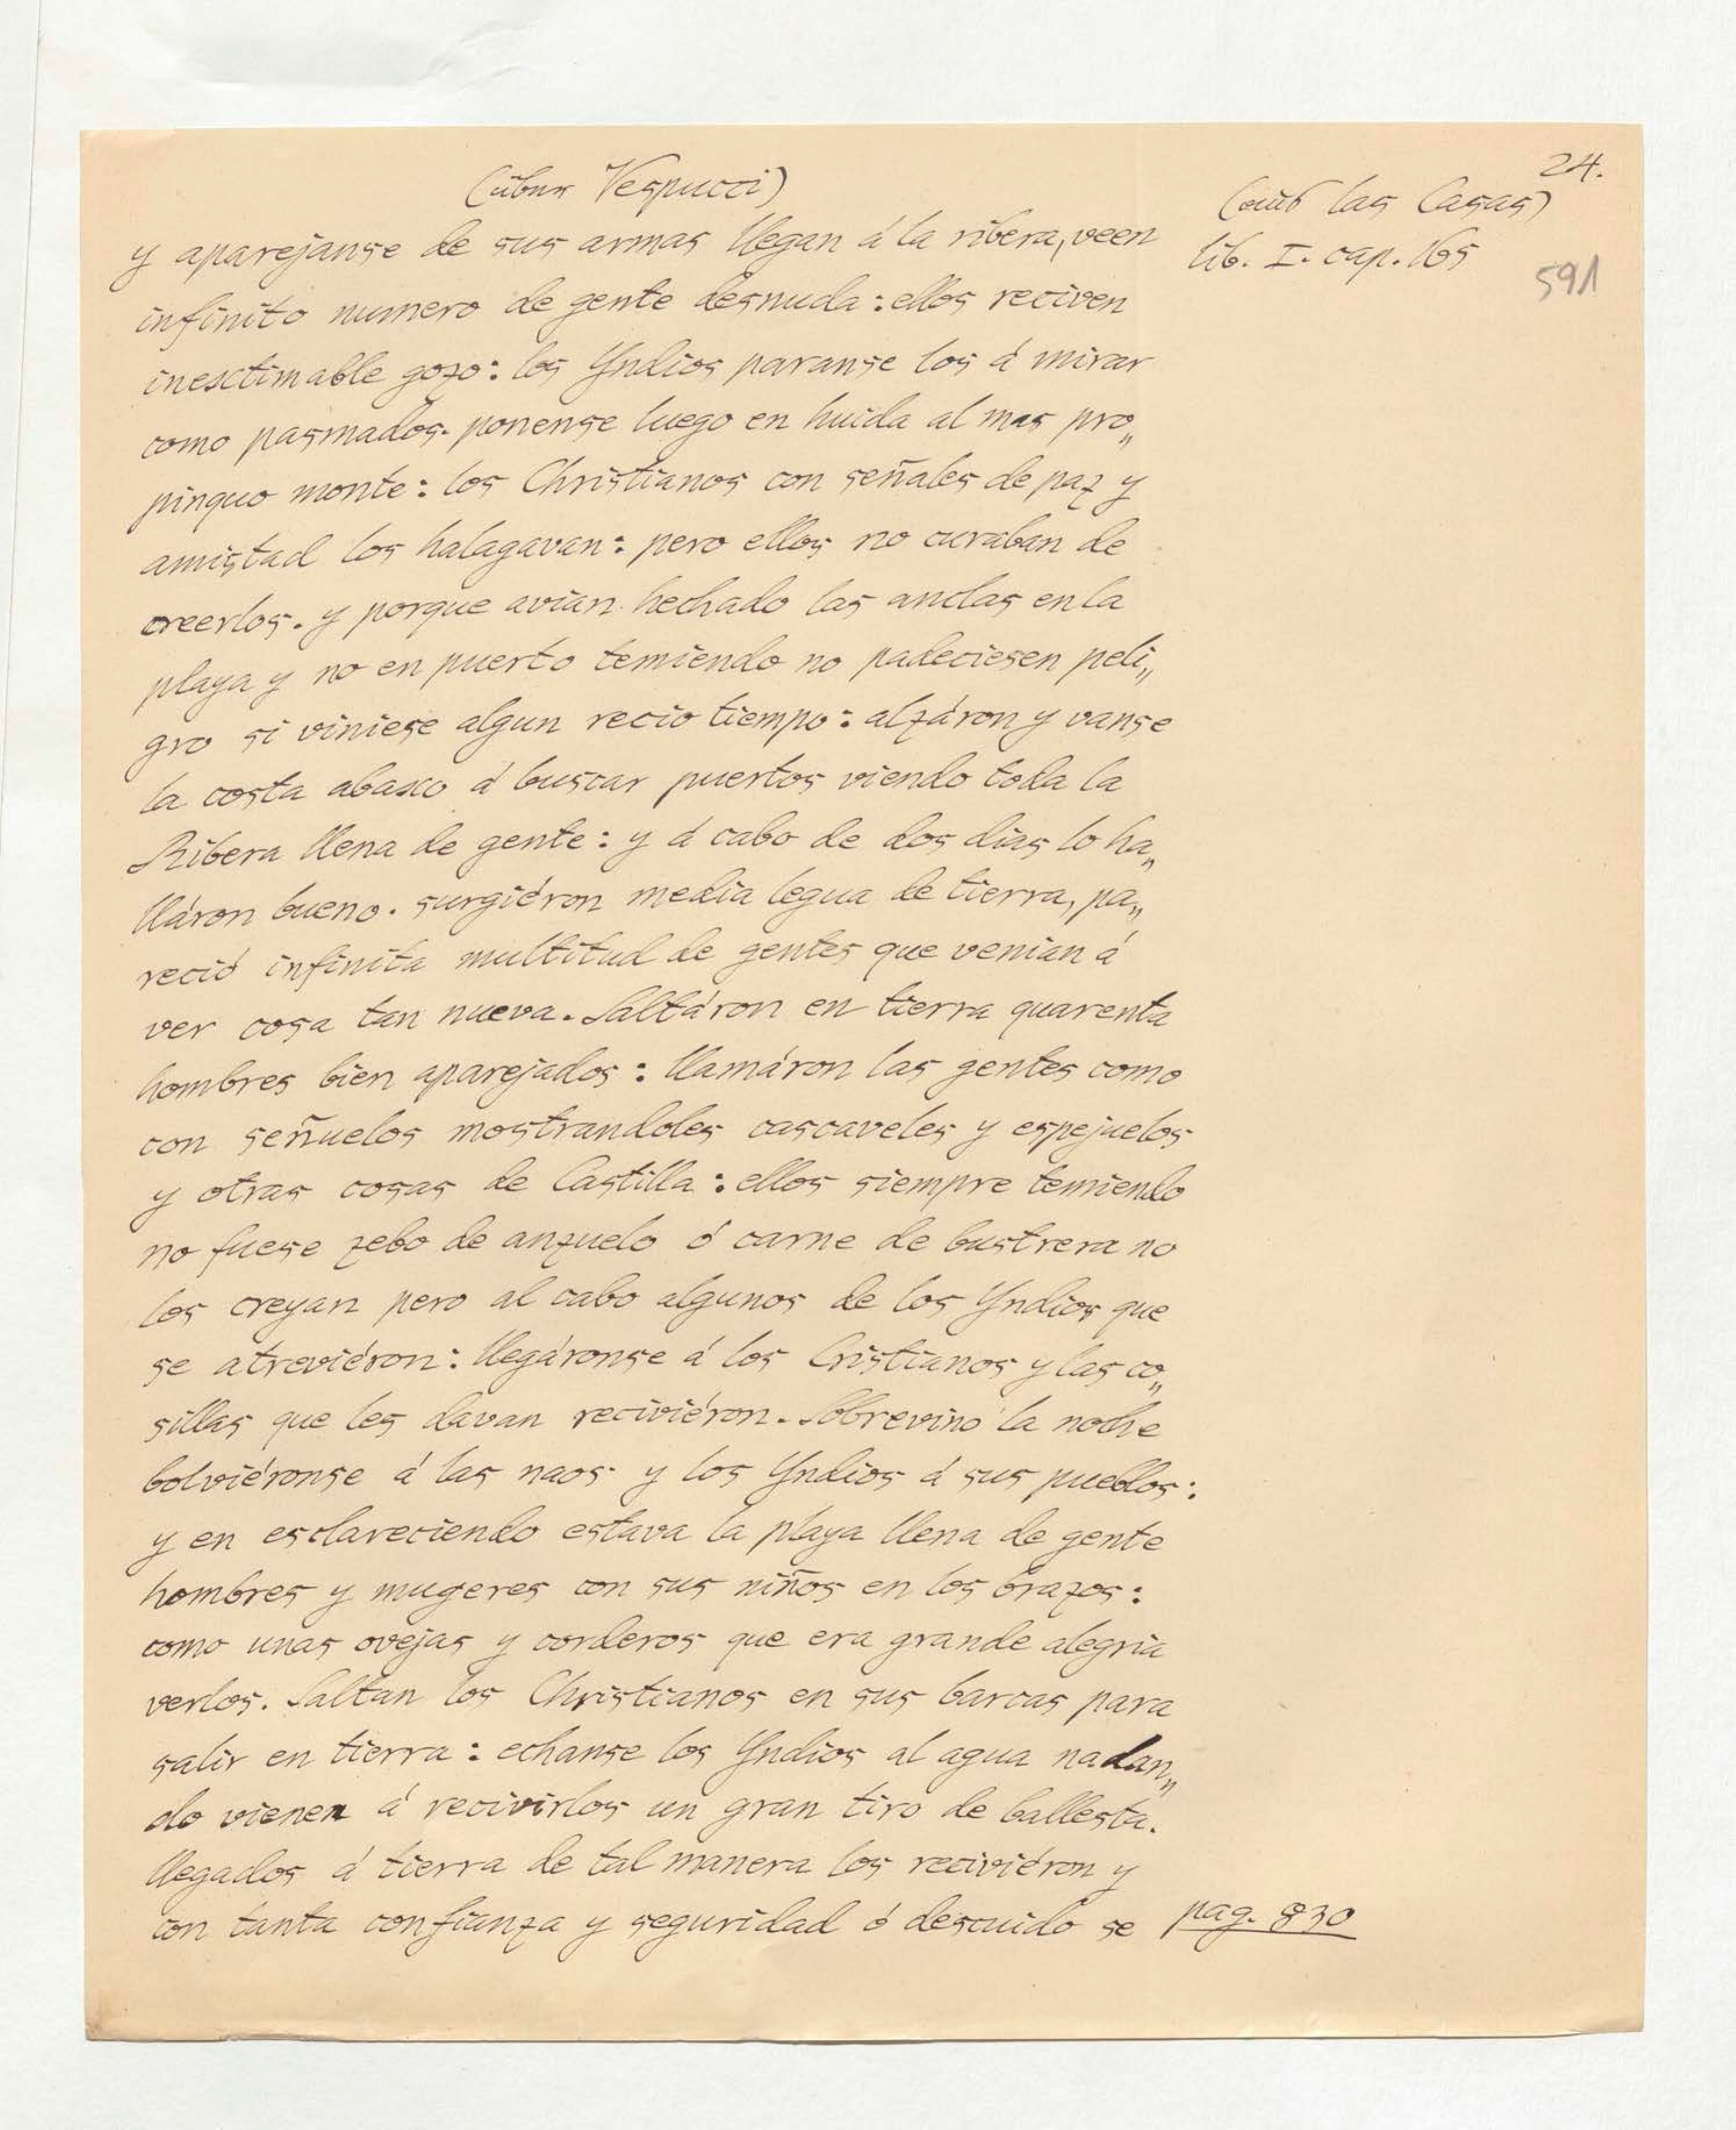 24.
(über Vespucci)
(aus las Casas)
lib. I. cap. 165
591
y aparejanse de sus armas llegan á la ribera, veen
infinito numero de gente desnuda: ellos reciven
inesctimable gozo: los Yndios paranse los á mirar
como pasmados. ponense luego en huida al mas pro„
pinquo monte: los Christianos con señales de paz y
amistad los halagavan: pero ellos no curaban de
creerlos. y porque avian hechado las anclas en la
playa y no en puerto temiendo no padeciesen peli„
gro si viniese algun recio tiempo: alzáron y vanse
la costa abaxo á buscar puertos viendo toda la
Ribera llena de gente: y á cabo de dos dias lo ha„
lláron bueno. surgiéron media legua de tierra, pa„
reció infinita multitud de gentes que venian á
ver cosa tan nueva. Saltáron en tierra quarenta
hombres bien aparejados: llamáron las gentes como
con señuelos mostrandoles cascaveles y espejuelos
y otras cosas de Castilla: ellos siempre temiendo
no fuese zebo de anzuelo ó carne de bustrera no
los creyan pero al cabo algunos de los Yndios que
se atreviéron: llegáronse á los Cristianos y las co„
sillas que les davan reciviéron. Sobrevinó la noche
bolviéronse á las naos y los Yndios á sus pueblos:
y en esclareciendo estava la playa llena de gente
hombres y mugeres con sus niños en los brazos:
como unas ovejas y corderos que era grande alegria
verlos. Saltan los Christianos en sus barcas para
salir en tierra: echanse los Yndios al agua nadan„
do vienen á recivirlos un gran tiro de ballesta.
llegados á tierra de tal manera los reciviéron y
con tanta confianza y seguridad ó descuido se
pag. 830